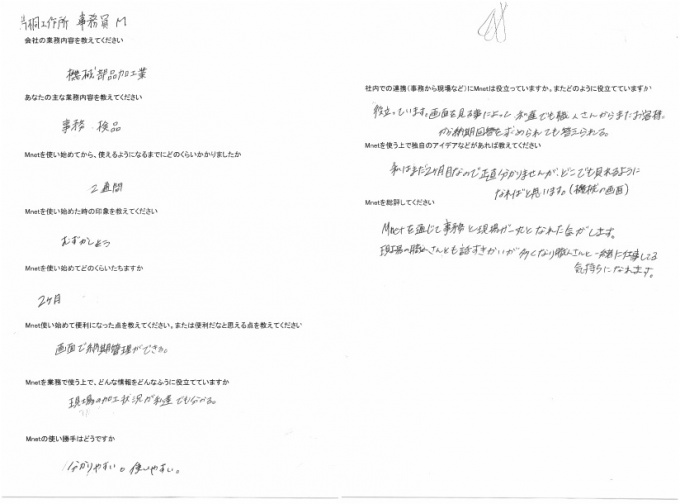 桐工作所 事務員 M
会社の業務内容を教えてください
機械部品加工業
あなたの主な業務内容を教えてください
事務 検品
Mnetを使い始めてから、使えるようになるまでにどのくらいかかりましたか
2週間
Mnetを使い始めた時の印象を教えてください
むずかしそう
Mnetを使い始めてどのくらいたちますか
2ヶ月
Mnet使い始めて便利になった点を教えてください。または便利だなと思える点を教えてください
画面で納期管理ができる。
Mnetを業務で使う上で、どんな情報をどんなふうに役立てていますか
現場の加工状況が私達でもわかる。
Mnetの使い勝手はどうですか
分かりやすい。使いやすい。
社内での連携(事務から現場など)にMnetは役立っていますか。またどのように役立てていますか
役立っています。画面を見る事によって 私達でも職人さんからまたお客様
から納期回答を求められても答えられる。
Mnetを使う上で独自のアイデアなどがあれば教えてください
私はまだ2ヶ月目なので正直分かりませんが、どこでも見れるように
なればと思います。(機械の画面)
Mnetを総評してください
Mnetを通じて事務と現場が一丸となれた気がします。
現場の職人さんとも話すきかいが多くなり職人さんと一緒に仕事してる
気持ちになれます。